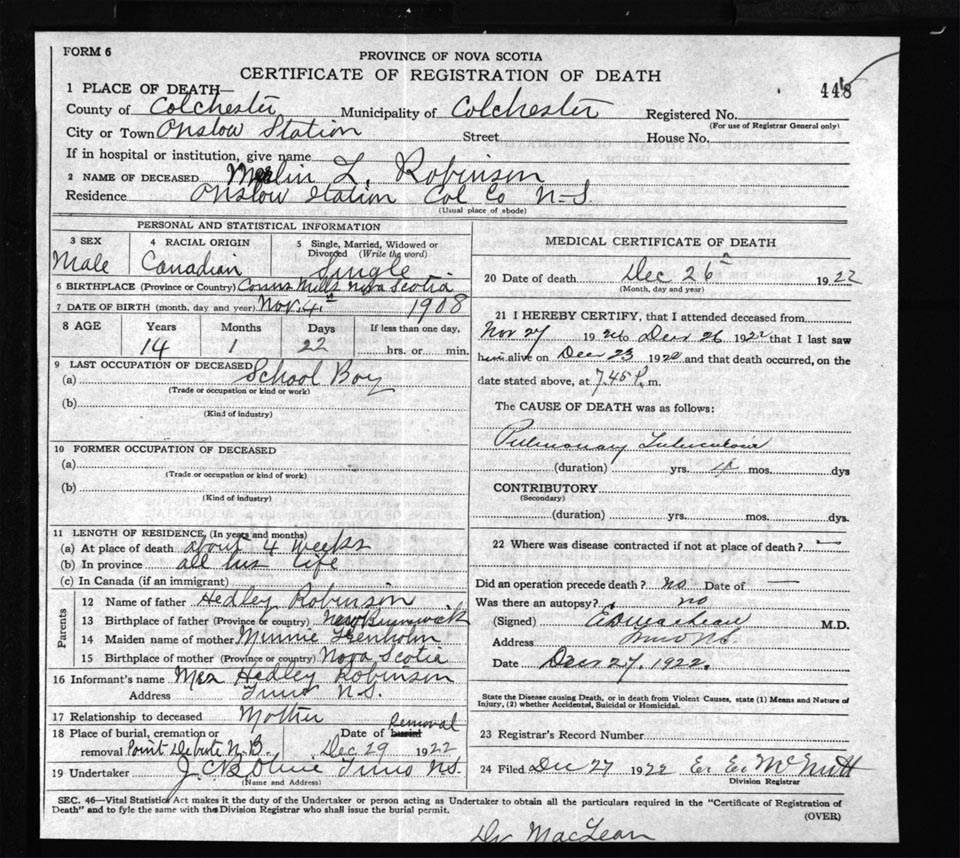 FORM 6
PROVINCE OF NOVA SCOTIA
CERTIFICATE OF REGISTRATION OF DEATH
448
1 PLACE OF DEATH—
County of Colchester Municipality of Colchester Registered No.
(For use of Registrar General only)
City or Town Onslow Station Street House No.
If in hospital or institution, give name
2 NAME OF DECEASED Merlin L. Robinson
Residence Onslow Station Col Co N-S.
(Usual place of abode)
PERSONAL AND STATISTICAL INFORMATION
3 SEX 4 RACIAL ORIGIN 5 Single, Married, Widowed or Divorced (Write the word)
Male Canadian Single
6 BIRTHPLACE (Province or Country) Mills Nova Scotia
7 DATE OF BIRTH (month, day and year) Nov. 4th 1908
8 AGE Years Months Days If less than one day,
14 1 22 hrs. or min.
9 LAST OCCUPATION OF DECEASED
(a) School Boy
(Trade or occupation or kind or work)
(b)
(Kind of industry)
10 FORMER OCCUPATION OF DECEASED
(a)
(Trade or occupation or kind of work)
(b)
(Kind of industry)
11 LENGTH OF RESIDENCE, (In years and months)
(a) At place of death about 4 weeks
(b) In province all his life
(c) In Canada (if an immigrant)
Parents
12 Name of father Hedley Robinson
13 Birthplace of father (Province or country) New Brunswick
14 Maiden name of mother Minnie Trenholm
15 Birthplace of mother (Province or country) Nova Scotia
16 Informant's name Mrs Hedley Robinson
Address Truro N.S.
17 Relationship to deceased Mother
18 Place of burial, cremation or removal Point Debute N.B. Date of burial Removal Dec 29 1922
19 Undertaker J.C.B. Olive Truro N.S.
(Name and Address)
MEDICAL CERTIFICATE OF DEATH
20 Date of death Dec 26th 1922
(Month, day and year)
21 I HEREBY CERTIFY, that I attended deceased from
Nov 27 192 to Decr 26 1922 that I last saw
him alive on Decr 23 1922 and that death occurred, on the
date stated above, at 7.45 P. m.
The CAUSE OF DEATH was as follows:
Pulmonary Tuberculosis
(duration) yrs. mos. dys
CONTRIBUTORY
(Secondary)
(duration) yrs. mos. dys.
22 Where was disease contracted if not at place of death? —
Did an operation precede death? no Date of —
Was there an autopsy? no
(Signed) M.D.
Address Truro NS
Date Decr 27, 1922.
State the Disease causing Death, or in death from Violent Causes, state (1) Means and Nature of
Injury, (2) whether Accidental, Suicidal or Homicidal.
23 Registrar's Record Number
24 Filed Dec 27 1922 E. E. McNutt
Division Registrar
SEC. 46—Vital Statistics Act makes it the duty of the Undertaker or person acting as Undertaker to obtain all the particulars required in the "Certificate of Registration of
Death" and to fyle the same with the Division Registrar who shall issue the burial permit.
(OVER)
Dr MacLean